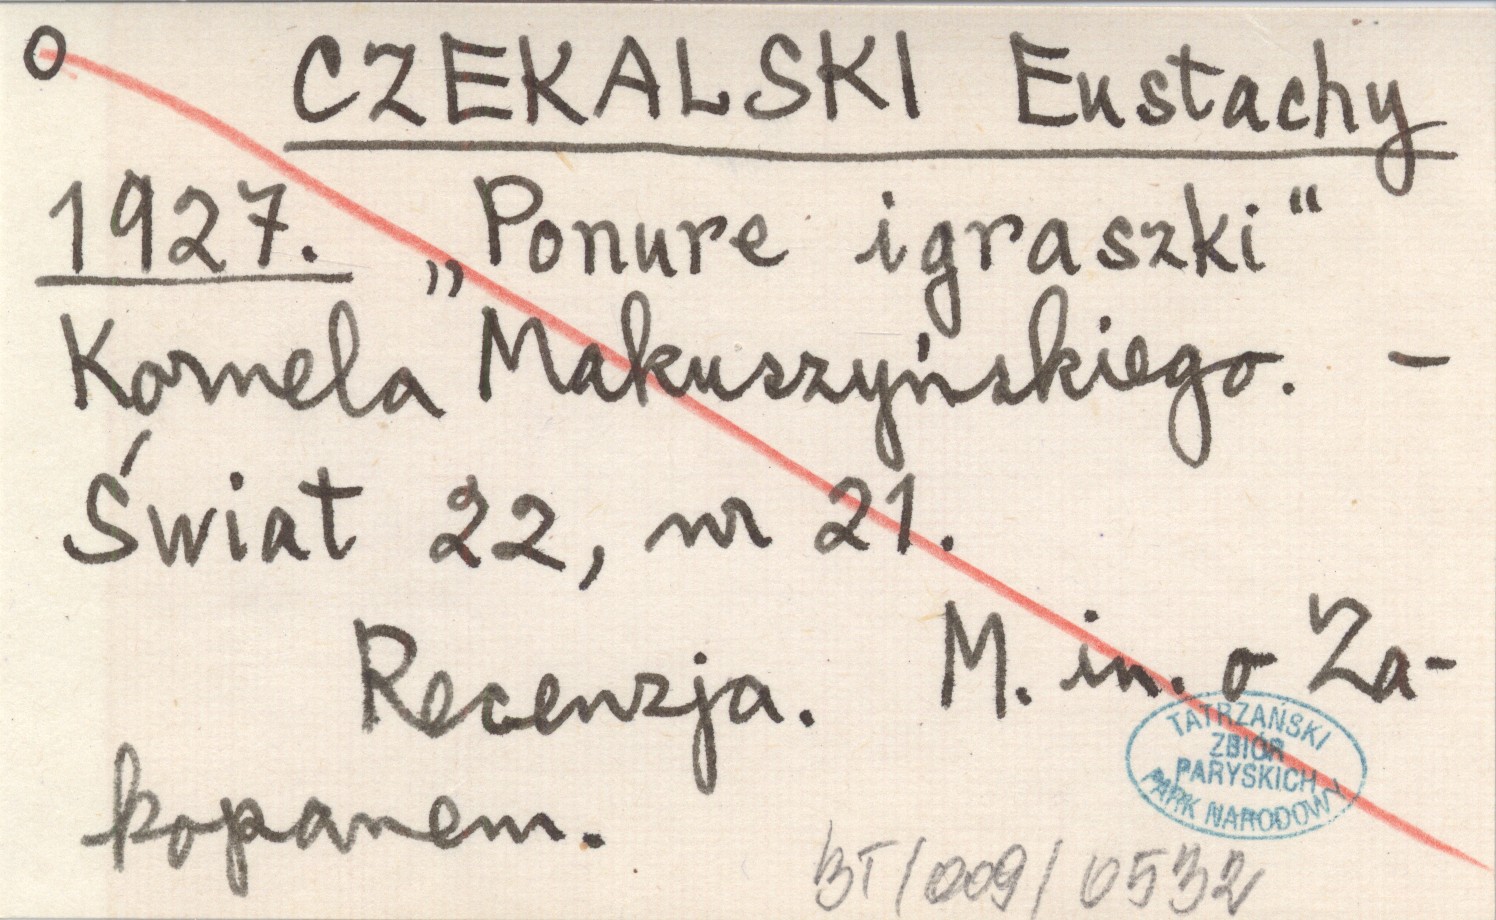 O CZEKALSKI Eustachy
1927. „Ponure igraszki“
Kornela Makuszyńskiego. —
Świat 22, nr 21.
Recenzja. M. in. o Za-
kopanem.
TATRZAŃSKI
ZBIÓR
PARYSKICH
PARK NARODOWY
BT/009/0532